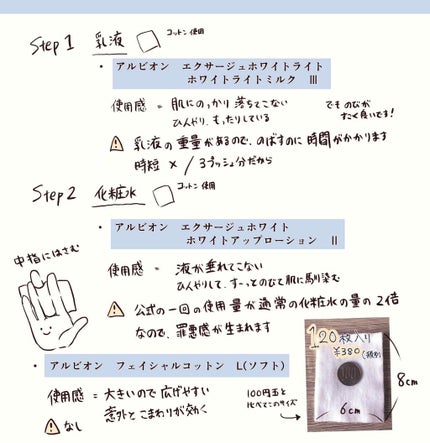 Step 1 乳液 コットン使用
・ アルビオン エクサージュホワイトライト
ホワイトライトミルク Ⅲ
使用感 = 肌にのっかり落ちてこない
ひんやり、もったりしている
でものびが
すごく良いです!
⚠ 乳液の重量があるので、のばすのに時間がかかります
時短 × / 3プッシュ分だから
Step 2 化粧水 コットン使用
・ アルビオン エクサージュホワイト
ホワイトアップローション Ⅱ
中指にはさむ
使用感 = 液が垂れてこない
ひんやりして、すーっとのびて肌に馴染む
⚠ 公式の一回の使用量が通常の化粧水の量の2倍
なので、罪悪感が生まれます
・ アルビオン フェイシャルコットン L(ソフト)
使用感 = 大きいので広げやすい
意外とこまわりが効く
⚠ なし
100円玉と
比べてこのサイズ
120枚入り
¥380(税抜)
8cm
6cm